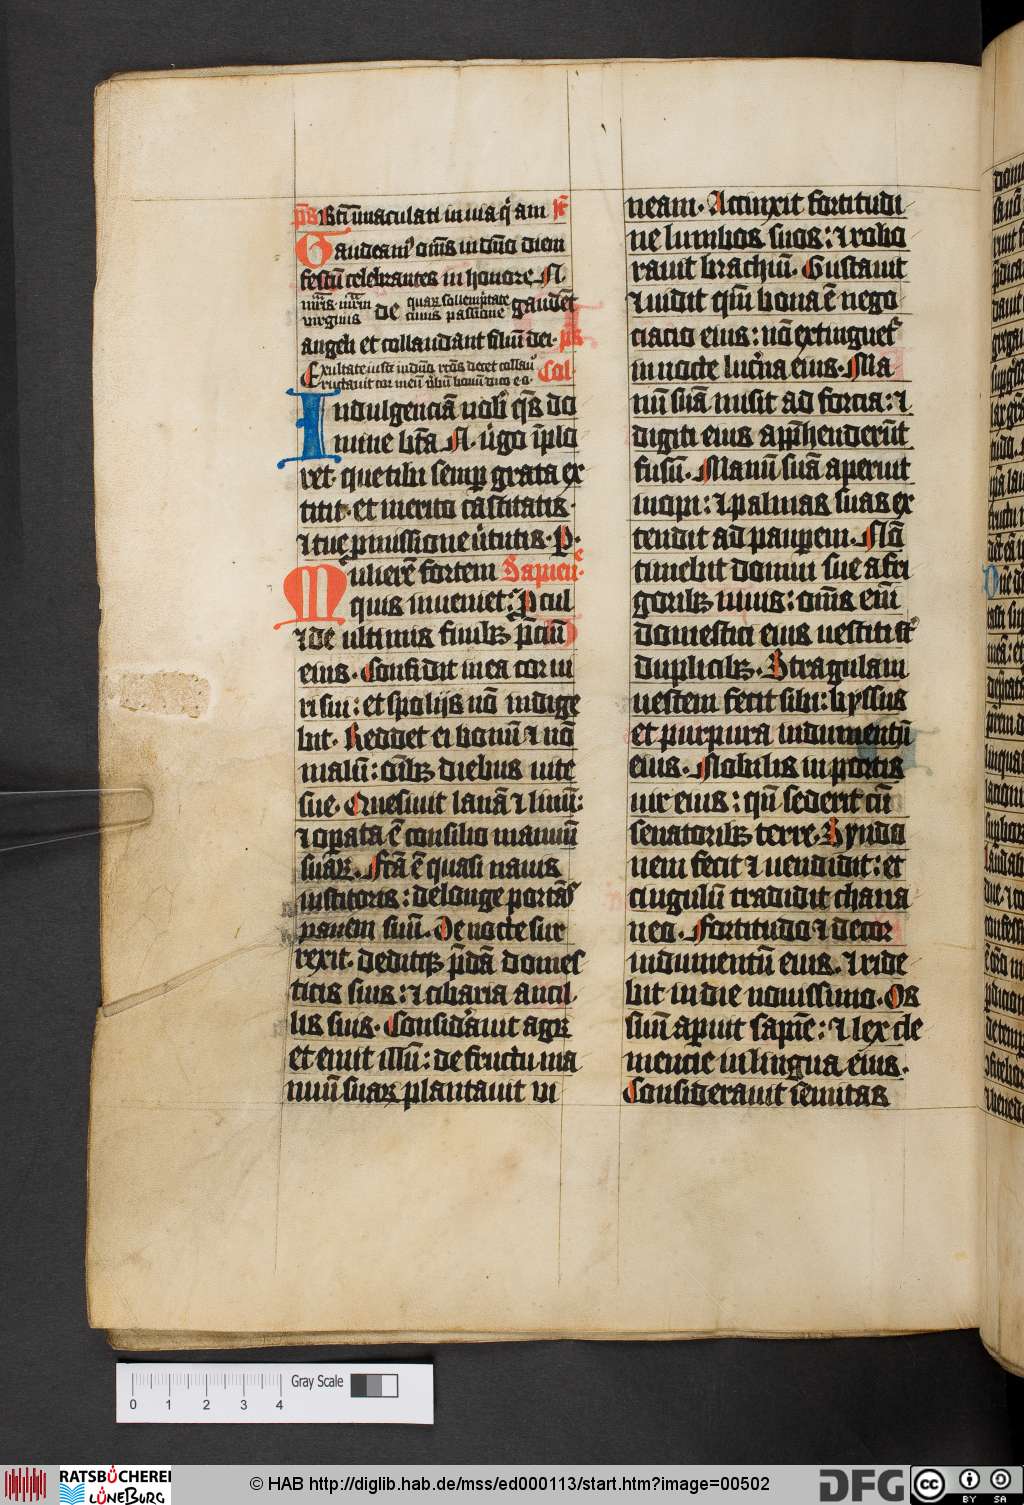 p̄s Bt̄i īmaculati in uia q̇ am It̄
Gaudeam⁹ om̄s in dn̄o diem
festū celebrantes in honore N.
mr̄is. mr̄m virginis de quar sollempnitate cuius passione gaudēt
angeli et collaudant filiū dei. p̄s
Exultate iusti in dn̄o rc̄os decet collau᷒
Eructauit cor meū v̄bū bonū dico e o. Col.
Indulgenciā nob̄ qs̄ do
mine bt̄a N. v̇go īplo
ret. que tibi semp̄ grata ex
titit. et merito castitatis.
⁊ tue p̄missione v̇tutis. P.
Mulierē fortem Sapien᷒.
quis inueniet: P̄cul
⁊ de ultimis finibꝫ p̄ciū
eius. Confidit in ea cor ui
ri sui: et spolijs nō indige
bit. Reddet ei bonū ⁊ nō
malū: om̄ibꝫ diebus uite
sue. Quesiuit lanā ⁊ linū:
⁊ op̄ata ē consilio manuū
suaꝝ. Fc̄a ē quasi nauis
institoris: de longe portās
panem suū. De nocte sur
rexit. deditqꝫ p̄dā domes
ticis suis: ⁊ cibaria ancil
lis suis. Consid̓auit agꝝ
et emit illū: de fructu ma
nuū suaꝝ plantauit vi
neam. Accinxit fortitudi
ne lumbos suos: ⁊ robo
rauit brachiū. Gustauit
⁊ uidit qm̄ bona ē nego
ciacio eius: nō extinguet᷒
in nocte luc̓na eius. Ma
nū suā misit ad forcia: ⁊
digiti eius app̄henderūt
fusū. Manū suā aperuit
inopi: ⁊ palmas suas ex
tendit ad paup̄em. Nō
timebit domui sue a fri
goribꝫ niuis: om̄s em̄
domestici eius uestiti st̄
duplicibꝫ. Stragulam
uestem fecit sibi: byssus
et purpura indumentū
eius. Nobilis in portis
uir eius: qn̄ sederit cū
senatoribꝫ terre. Syndo
nem fecit ⁊ uendidit: et
cingulū tradidit chana
neo. Fortitudo ⁊ decor
indumentū eius. ⁊ ride
bit in die nouissimo. Os
suū ap̄uit sapīe: ⁊ lex cle
mencie in lingua eius.
Considerauit semitas
Gray Scale
0 1 2 3 4
RATSBÜCHEREI LÜNEBURG
© HAB http://diglib.hab.de/mss/ed000113/start.htm?image=00502
DFG
cc BY SA